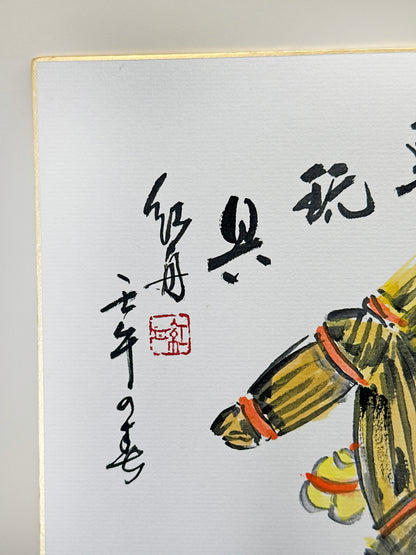 玩具
紅舟
壬午の春